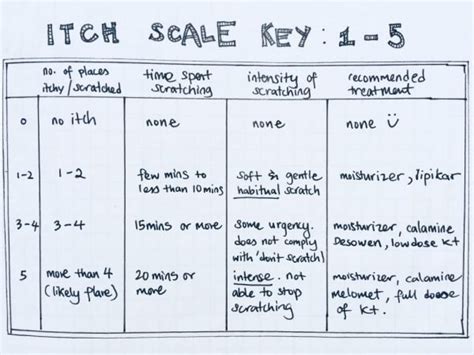 ITCH SCALE KEY: 1-5
no. of places itchy/scratched
time spent scratching
intensity of scratching
recommended treatment
0
no itch
none
none
none
1-2
1-2
few mins to
less than 10 mins
soft & gentle
habitual scratch
moisturizer, lipikar
3-4
3-4
15 mins or more
some urgency.
does not comply
with 'don't scratch'
moisturizer, calamine
Desowen, low dose kt
5
more than 4
(likely flare)
20 mins or
more
intense. not
able to stop
scratching
moisturizer, calamine
melomet, full dose
of kt.